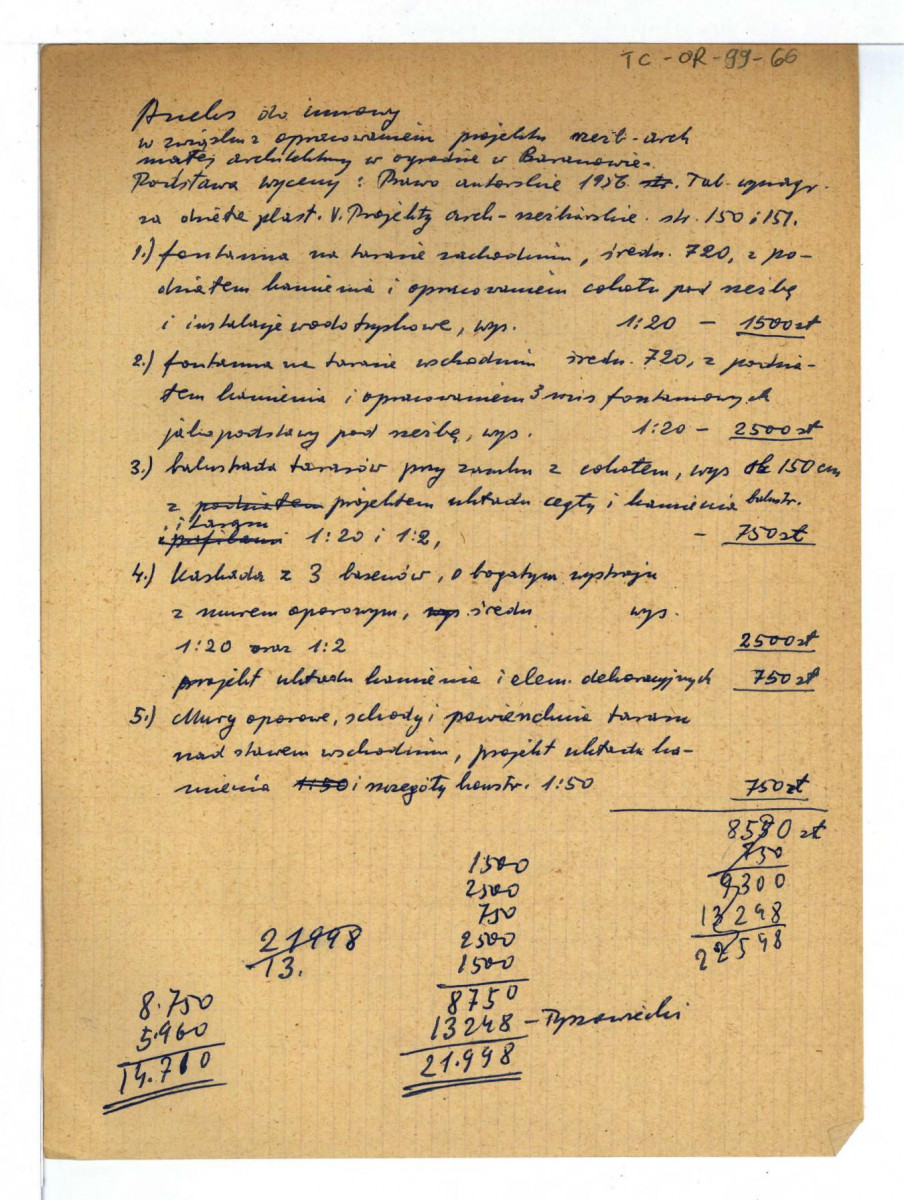 TC-OR-99-66
Aneks do umowy
w związku z opracowaniem projektu rzeźb-arch
małej architektury w ogrodzie w Baranowie.
Podstawa wyceny: Prawo autorskie 1956. str. Tab. wynagr.
za dzieła plast. V. Projekty arch-rzeźbiarskie. str. 150 i 151.
1.) fontanna na tarasie zachodnim, średn. 720, z po-
działem kamienia i opracowaniem cokołu pod rzeźbę
i instalacje wodotryskowe, wys. 1:20 - 1500 zł
2.) fontanna na tarasie wschodnim średn. 720, z podzia-
łem kamienia i opracowaniem 3 mis fontannowych
jako podstawy pod rzeźbę, wys. 1:20 - 2500 zł
3.) balustrada tarasów przy zamku z cokołem, wys ok 150 cm
z podziałem projektem układu cegły i kamienia balustr.
i tarasu
i profilami 1:20 i 1:2, - 750 zł
4.) Kaskada z 3 basenów, o bogatym wystroju
z murem oporowym, wys. średn wys.
1:20 oraz 1:2 2500 zł
projekt układu kamienia i elem. dekoracyjnych 750 zł
5.) Mury oporowe, schody i powierzchnia tarasu
nad stawem wschodnim, projekt układu ka-
mienia 1:50 i szczegóły konstr. 1:50 750 zł
8550 zł
750
9300
13248
22598
1500
2500
750
2500
1500
8750
13248 - Tyszowiecki
21.998
21998
13.
8.750
5.960
14.710